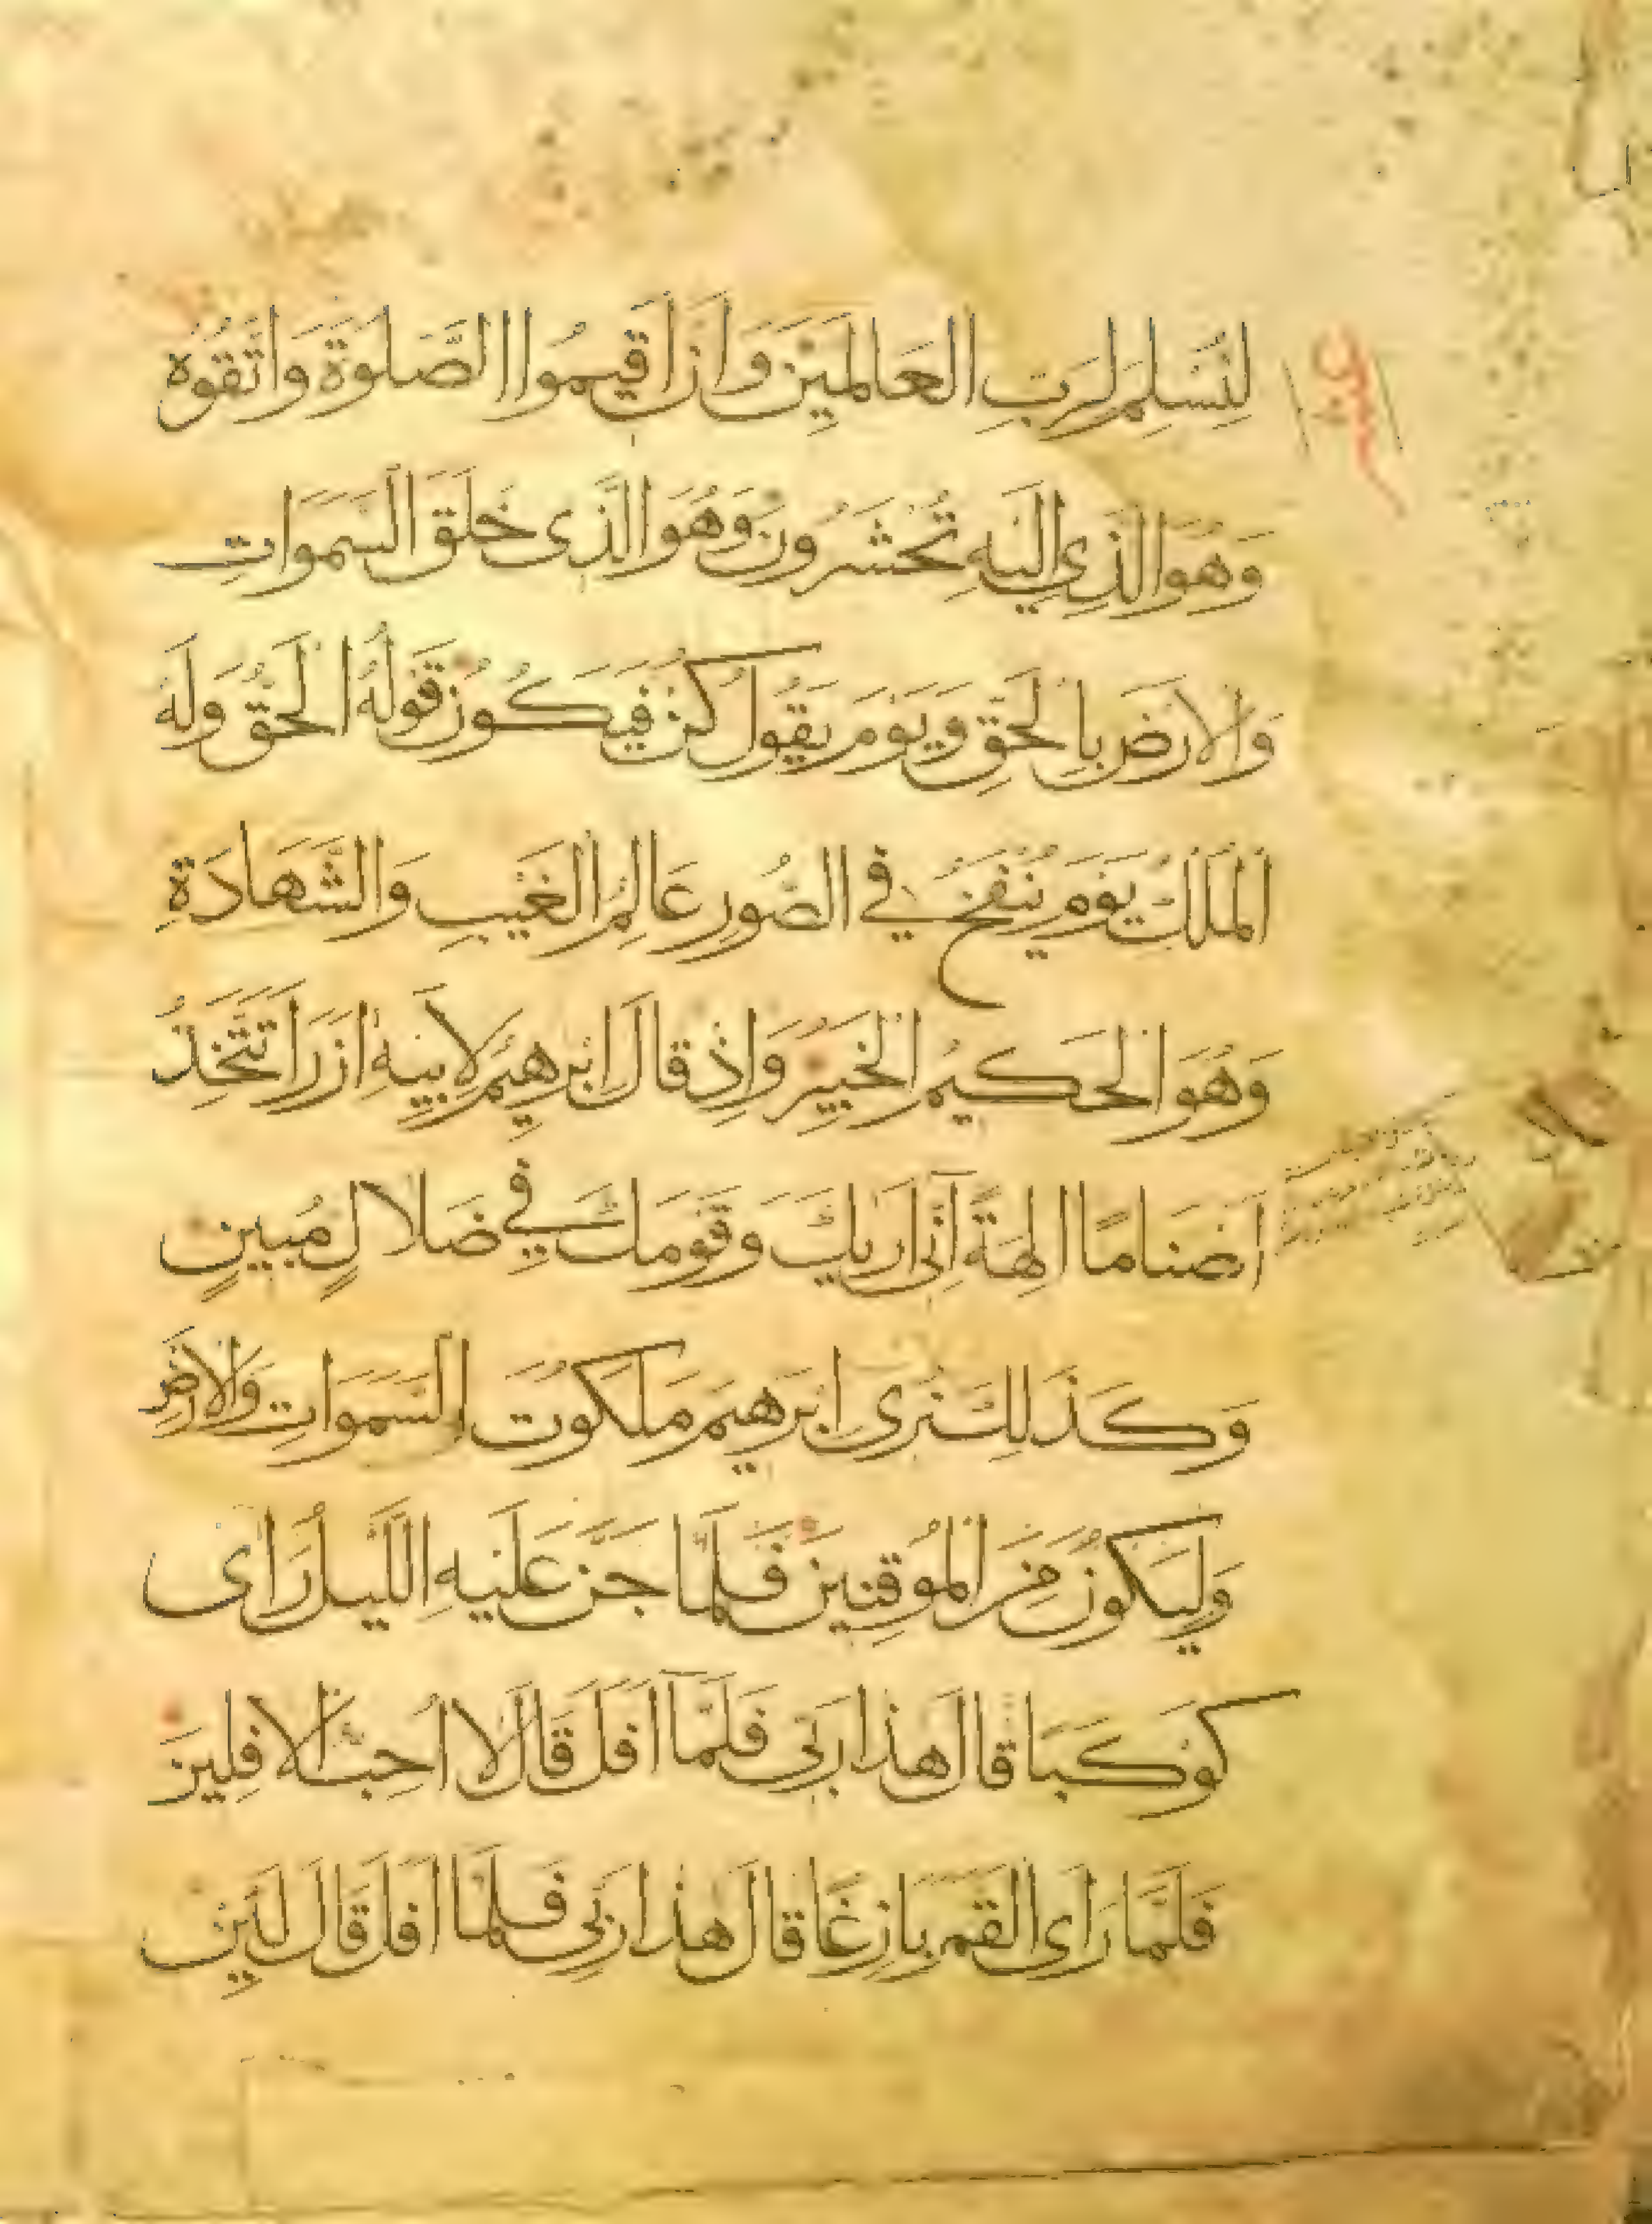 لِنُسْلِمَ لِرَبِّ الْعَالَمِيْنَ وَاَنْ اَقِيمُوا الصَّلٰوةَ وَاتَّقُوهُ
وَهُوَ الَّذِي اِلَيْهِ تُحْشَرُونَ وَهُوَ الَّذِى خَلَقَ السَّمَوَاتِ
وَالْاَرْضَ بِالْحَقِّ وَيَوْمَ يَقُولُ كُنْ فَيَكُوْنُ قَوْلُهُ الْحَقُّ وَلَهُ
الْمُلْكُ يَوْمَ يُنْفَخُ فِي الصُّورِ عَالِمُ الْغَيْبِ وَالشَّهَادَةِ
وَهُوَ الْحَكِيمُ الْخَبِيْرُ وَاِذْ قَالَ اِبْرَهِيْمُ لِاَبِيْهِ اٰزَرَ اَتَتَّخِذُ
اَصْنَامًا اٰلِهَةً اِنِّى اَرٰيكَ وَقَوْمَكَ فِي ضَلَالٍ مُبِينٍ
وَكَذَلِكَ نُرِى اِبْرَهِيْمَ مَلَكُوْتَ السَّمَوَاتِ وَالْاَرْضِ
وَلِيَكُونَ مِنَ الْمُوقِنِيْنَ فَلَمَّا جَنَّ عَلَيْهِ الَّيْلُ رَاٰى
كَوْكَبًا قَالَ هٰذَا رَبِّى فَلَمَّا اَفَلَ قَالَ لَا اُحِبُّ الْاٰفِلِيْنَ
فَلَمَّا رَاَى الْقَمَرَ بَازِغًا قَالَ هٰذَا رَبِّى فَلَمَّا اَفَلَ قَالَ لَئِنْ